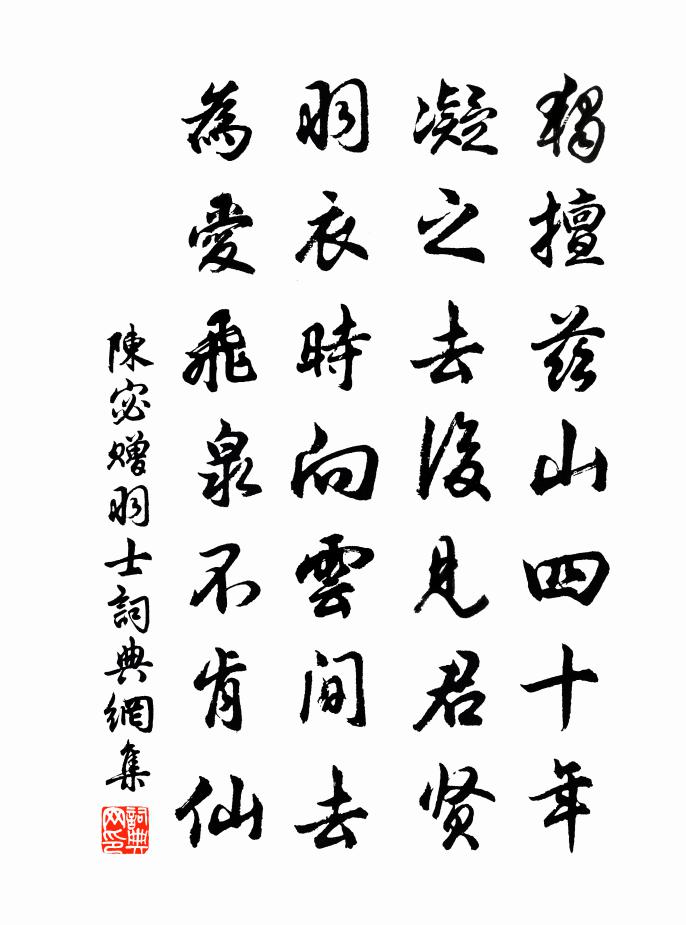 獨擅茲山四十年
凝之去後見君賢
羽衣時向雲間去
為愛飛泉不肯仙
陳宓贈羽士詞典網集
詞典網印